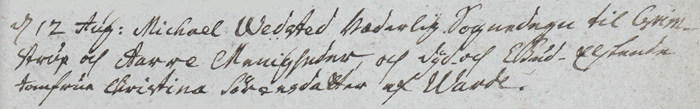 d 12 Aug: Michael Wedsted Hæderlig Sognedegn til Grim-
strup og Aarre Menigheder, og Dyd og Elskende
Jomfrue Christina Sörensdatter af Warde.